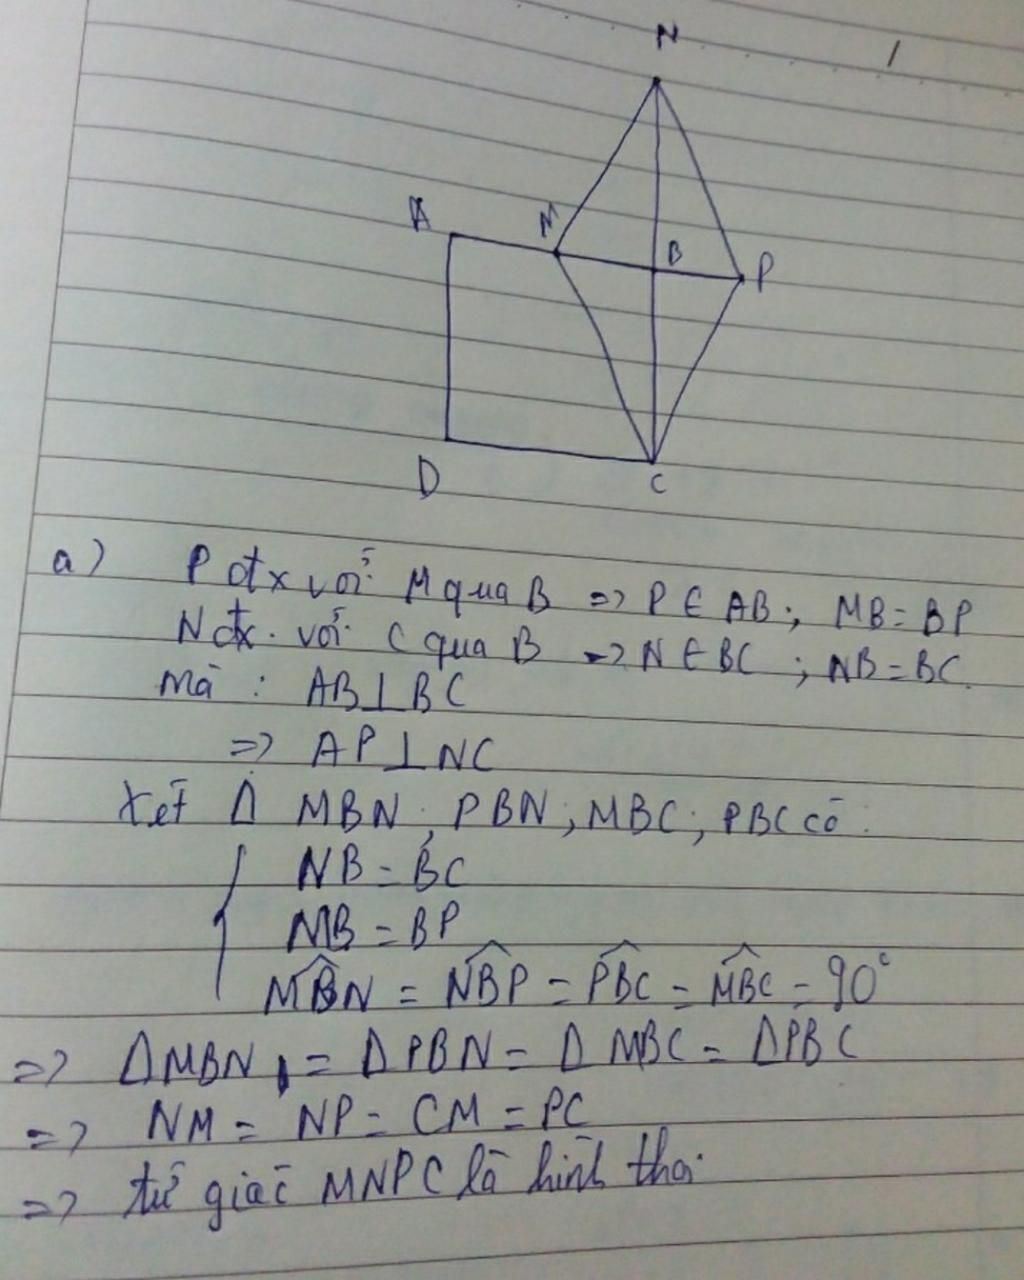 N
A
M
B
P
D
C
a) P đx với M qua B => P ∈ AB; MB = BP
N đx. với C qua B => N ∈ BC; NB = BC.
mà : AB ⊥ BC
=> AP ⊥ NC
Xét Δ MBN; PBN; MBC; PBC có:
NB = BC
MB = BP
\widehat{MBN} = \widehat{NBP} = \widehat{PBC} = \widehat{MBC} = 90°
=> ΔMBN = ΔPBN = ΔMBC = ΔPBC
=> NM = NP = CM = PC
=> tứ giác MNPC là hình thoi